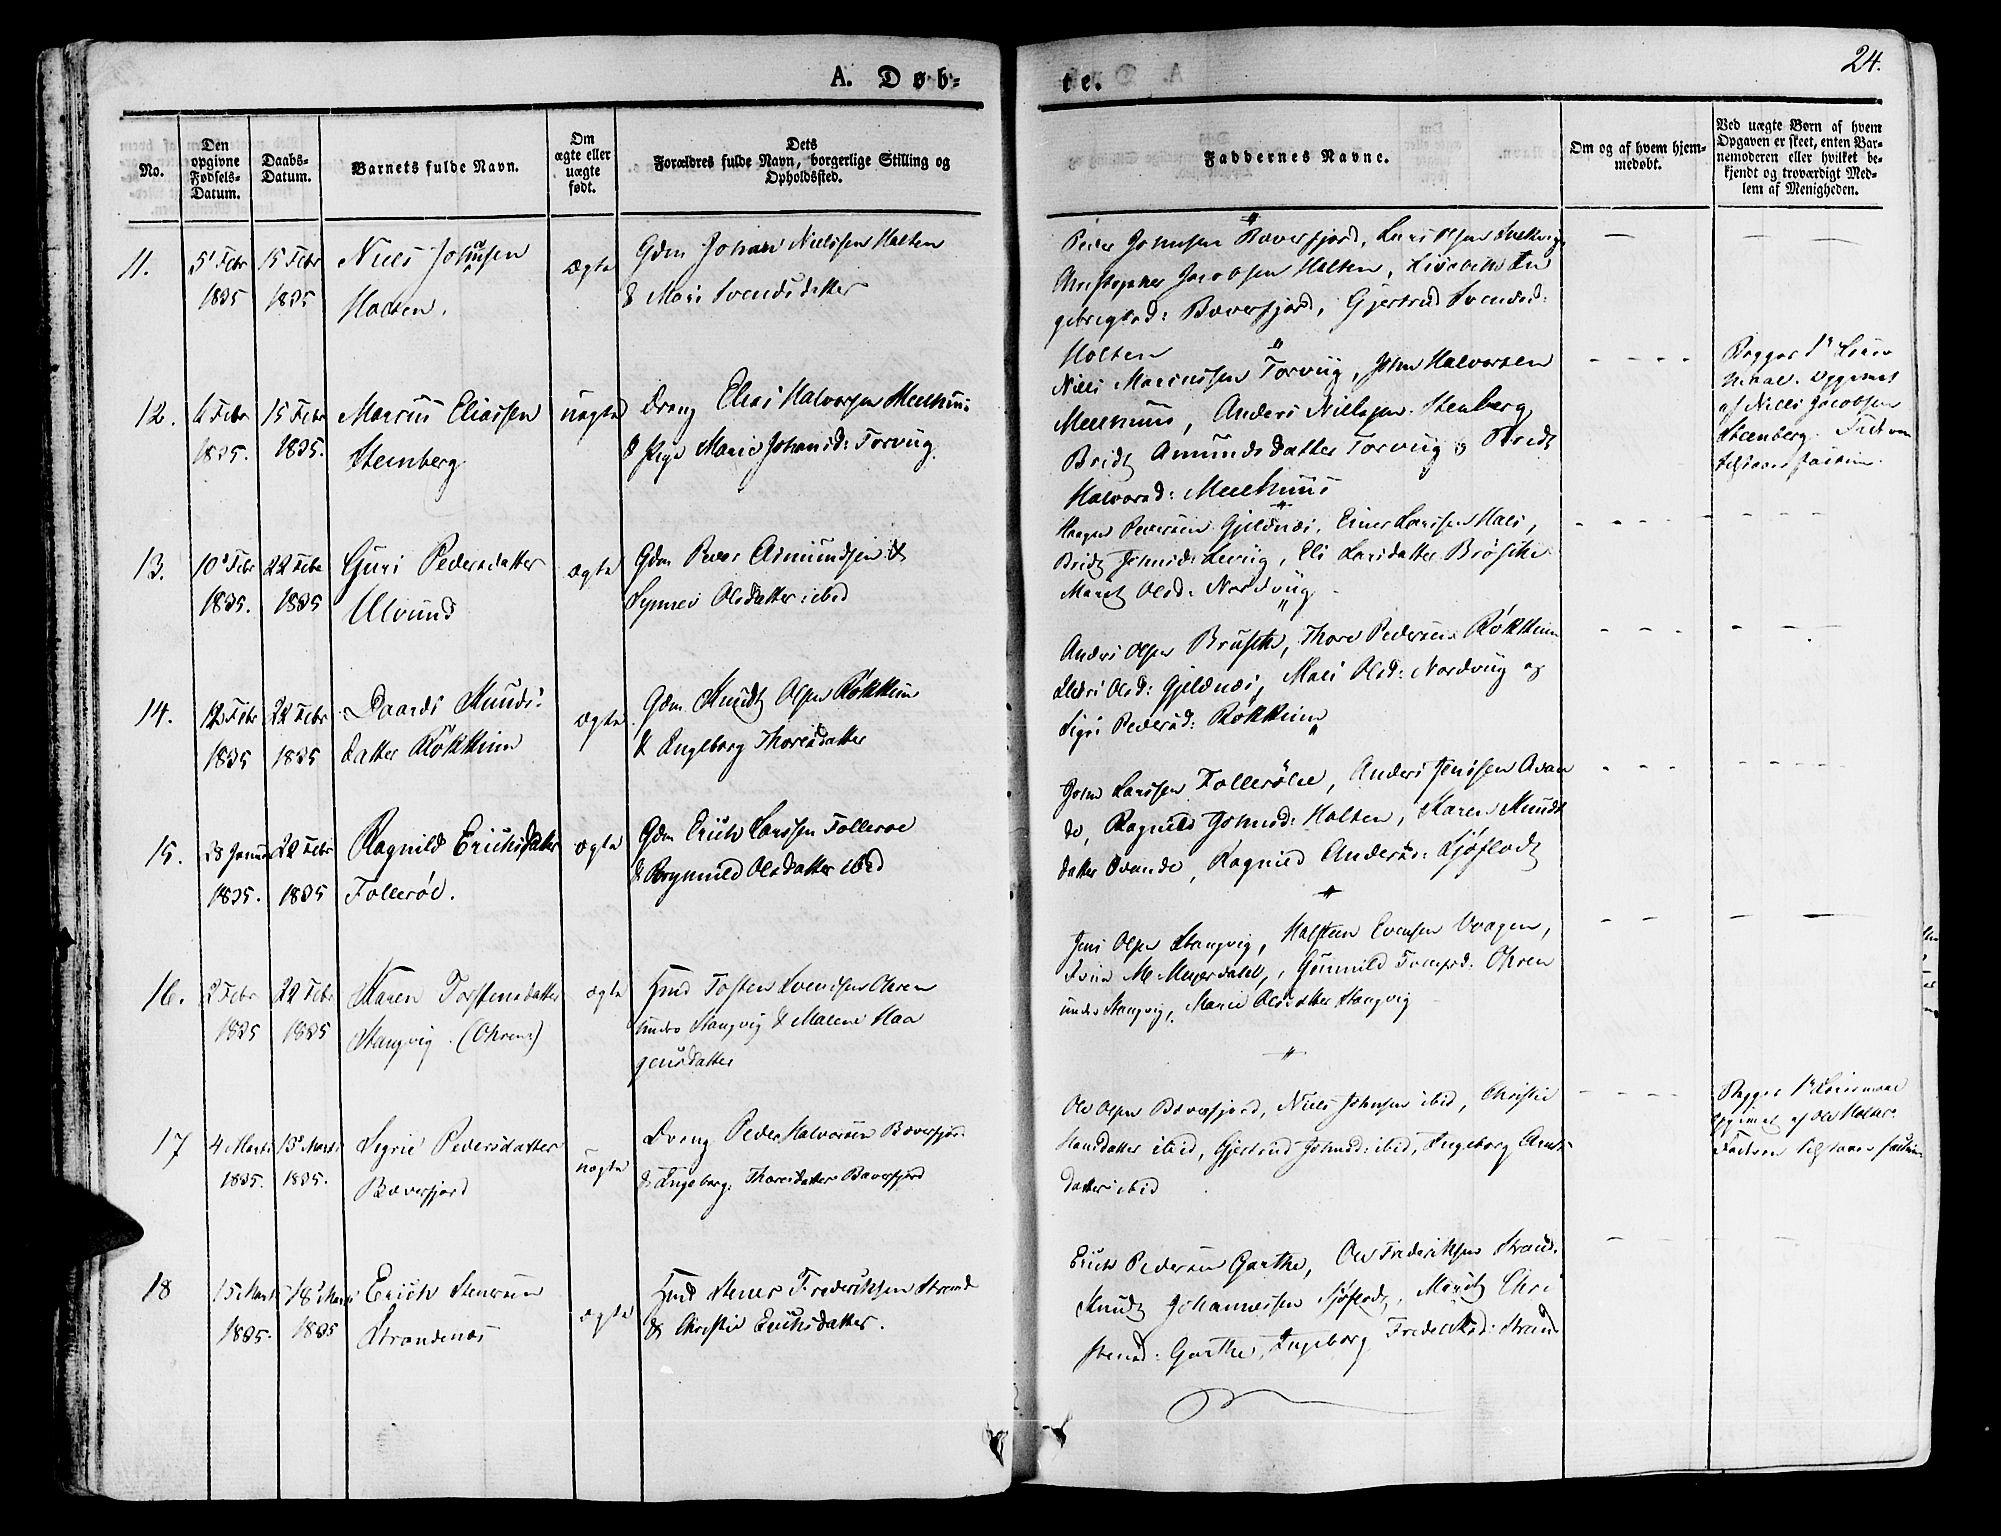 A. Døb=
te.
24.
No.
Den opgivne Fødsels-Datum.
Daabs-Datum.
Barnets fulde Navn.
Om ægte eller uægte født.
Dets
Forældres fulde Navn, borgerlige Stilling og
Opholdssted.
Faddernes Navne.
Om og af hvem hjem-
medøbt.
Ved uægte Børn af hvem
Opgaven er skeet, enten Bar-
nemoderen eller hvilket be-
kjendt og troværdigt Med-
lem af Menigheden.
11.
5 Febr
1835
15 Febr
1835
Niels Johansen
Holten.
ægte
Gdm Johan Nielsen Holten
& Mari Svendsdatter
Peder Johnsen Bæverfjord, Lars Olsen
Christopher Jacobsen Holten,
Bæverfjord, Gjertrud Svendsd:
Holten
12.
6 Febr
1835.
15 Febr
1835.
Marcus Eliassen
Stenberg
uægte
Dreng Elias Halvorsen Meelhuus
& Pige Marie Johansd: Torvug.
Niels Marcussen Torvug, John Halvorsen
Meelhuus, Anders Nielssen Stenberg
Bridt Amundsdatter Torvug og Bridt
Halvorsd: Meelhuus
Begges 1ste
Opgivet
af Niels Jacobsen
Steenberg.
13.
10 Febr
1835.
22 Febr
1835
Guri Pedersdatter
Ulvund
ægte
Gdm Peder Asmundsen &
Synnev Olsdatter ibid
Haagen Pedersen Gjeldnæs, Einer Larssen Hals,
Bridt Johnsd: Lervig, Eli Larsdatter Brøske
Marit Olsd: Nordvug
14.
12 Febr
1835
22 Febr
1835
Daardi Knuds:
datter Røkkum
ægte
Gdm Knudt Olsen Røkkum
& Ingeborg Thoresdatter
Anders Olsen Bruske, Thore Pedersen Røkkum
Olsd: Gjeldnæs, Mali Olsd: Nordvug og
Sigri Pedersd: Røkkum
15.
28 Januar
1835.
22 Febr
1835
Ragnild Erichsdatter
Follerøe.
ægte
Gdm Erich Larssen Follerøe
& Brynnild Olsdatter ibid
John Larssen Follerøe, Anders Jenssen Qvan
de, Ragnild Johnsd: Holten, Karen Knudt
datter Qvande, Ragnild Andersd: Sjøflodt
16.
2 Febr
1835
22 Febr
1835
Karen Torstensdatter
Stangvig (Øhren)
ægte
Huusmd Tosten Svendsen Øhren
under Stangvig & Malene Haa
gensdatter
Jens Olsen Stangvig, Halsten Evensen Vaagen,
Gunnild Øhren
under Stangvig, Marie Olsdatter Stangvig
17
4 Marts
1835.
13 Marts
1835.
Sigrie Pedersdatter
Bæverfjord
uægte
Dreng Peder Halvorsen Bæverfjor:
& Ingeborg Thoresdatter Bæverfjord
Ole Olsen Bæverfjord, Niels Johnsen ibid, Christie
Hansdatter ibid, Gjertrud Johnsd: ibid, Ingeborg Arnts
datter ibid
Begges 1ste Leiermaal
Opgivet af Ole Holter
18
15 Marts
1835.
18 Marts
1835
Erich Stenersen
Strandenæs
ægte
Huusmd Stener Frederiksen Strand
& Christie Erichsdatter.
Erich Pedersen Garthe, Ole Frederiksen Strand.
Knudt Johannessen Sjøflodt, Marit Chri
stensd: Garthe, Ingeborg Frederiksd: Strand